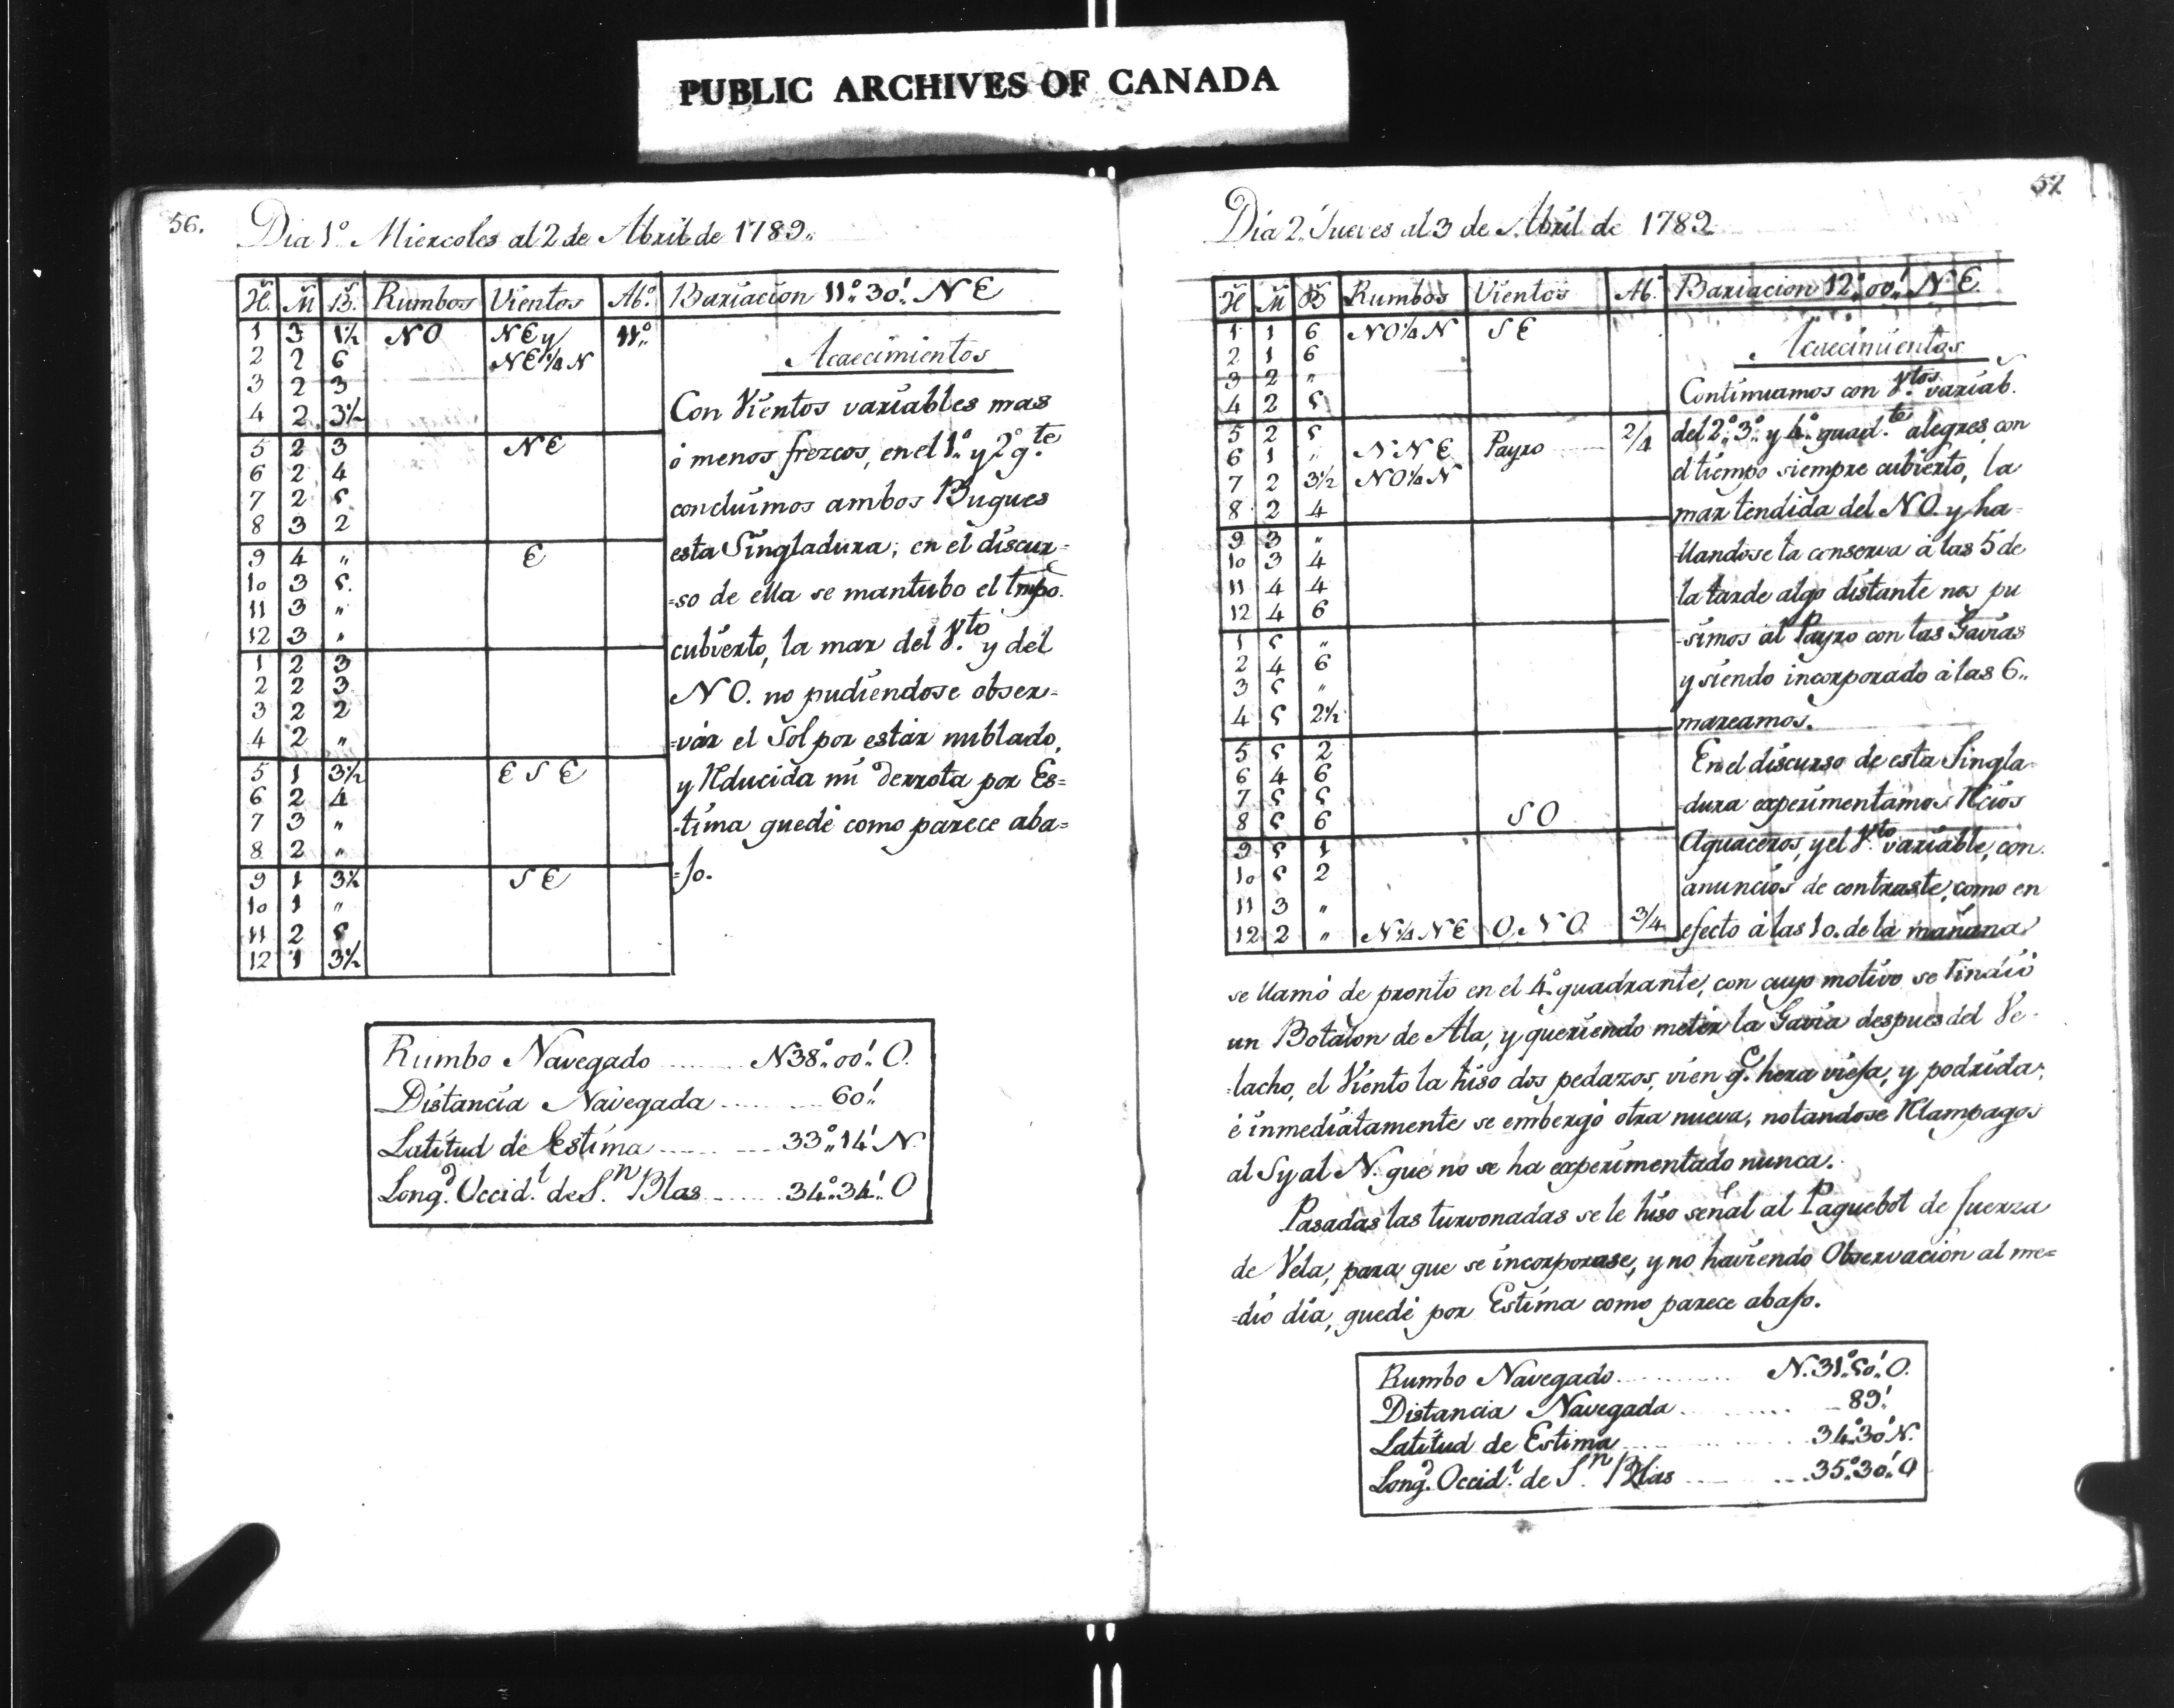 PUBLIC ARCHIVES OF CANADA
56.
Dia 1.º Miercoles al 2 de Abril de 1789.
H. M B. Rumbos Vientos Ab.º Bariacion 11.º 30.' NE
1 3 1½ NO NE y 11.º
2 2 6 NE¼N
3 2 3
4 2 3½
5 2 3 NE
6 2 4
7 2 5
8 3 2
9 4 " E
10 3 5
11 3 "
12 3 "
1 2 3
2 2 3
3 2 2
4 2 "
5 1 3½ ESE
6 2 4
7 3 "
8 2 "
9 1 3½ SE
10 1 "
11 2 5
12 1 3½
Acaecimientos
Con Vientos variables mas
ó menos frezcos, en el 1.º y 2.º q.te
concluimos ambos Buques
esta Singladura; en el discur=
=so de ella se mantubo el tmpo.
cubierto, la mar del V.to y del
NO. no pudiendose obser=
=vár el Sol por estár nublado,
y Rducida mi derrota por Es=
=tima quedé como parece aba=
=jo.
Rumbo Navegado ........ N38.º 00.' O.
Distancia Navegada ........ 60.'
Latitud de Estima ........ 33.º 14.' N
Long.d Occid.l de S.n Blas ........ 34.º 34.' O
57
Dia 2. Jueves al 3 de Abril de 1789
H M B Rumbos Vientos Ab.º Bariacion 12.º 00.' NE
1 1 6 NO¼N SE
2 1 6
3 2 "
4 2 5
5 2 5
6 1 " NNE Payro 2/4
7 2 3½ NO¼N
8 2 4
9 3 "
10 3 4
11 4 4
12 4 6
1 5 "
2 4 6
3 5 "
4 5 2½
5 5 2
6 4 6
7 5 5
8 5 6 SO
9 5 1
10 5 2
11 3 "
12 2 " N¼NE O.NO 3/4
Acaecimientos
Continuamos con V.tos variab.
del 2.º 3.º y 4.º quad.te alegres, con
el tiempo siempre cubierto, la
mar tendida del NO. y ha=
llandose la conserva á las 5 de
la tarde algo distante nos pu
=simos al Payro con las Gavias
y siendo incorporado á las 6..
mareamos.
En el discurso de esta Singla=
=dura experimentamos Rcios
Aguaceros, y el V.to variable, con
anuncios de contraste, como en
efecto á las 10. de la mañana
se llamó de pronto en el 4.º quadrante, con cuyo motivo se rindió
un Botalon de Ala, y queriendo metér la Gavia despues del Ve=
=lacho, el Viento la hiso dos pedazos, vien q.e hera vieja, y podrida;
é inmediatamente se embergó otra nueva, notandose Rlampagos
al S y al N. que no se ha experimentado nunca.
Pasadas las turvonadas se le hiso señal al Paquebot de fuerza
de Vela, para que se incorporase, y no haviendo Observacion al me=
=dio dia, quedé por Estima como parece abajo.
Rumbo Navegado ........ N.31.º 50.' O.
Distancia Navegada ........ 89.'
Latitud de Estima ........ 34.º 30.' N.
Long.d Occid.l de S.n Blas ........ 35.º 30.' O